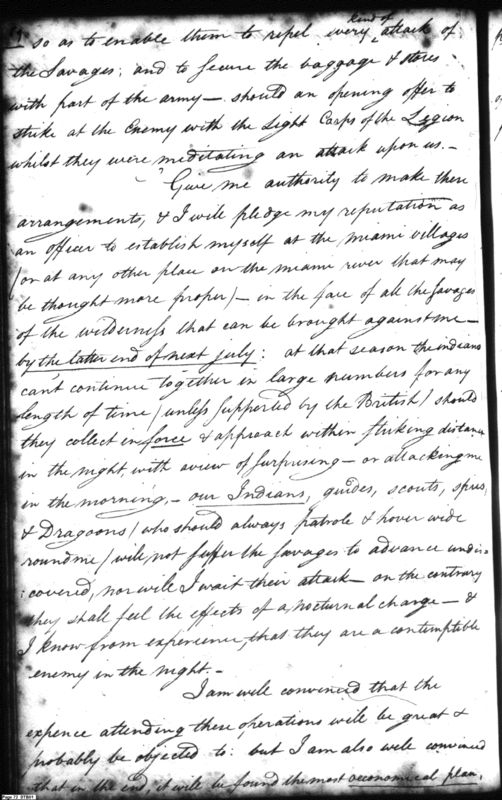 so as to enable them to repel every kind of attack of
the Savages; and to secure the baggage & stores
with part of the army — should an opening offer to
strike at the Enemy with the Light Corps of the Legion
whilst they were meditating an attack upon us. —
Give me authority to make these
arrangements, & I will pledge my reputation as
an officer to establish myself at the miami villages
(or at any other place on the miami river that may
be thought more proper) — in the face of all the Savages
of the wilderness that can be brought against me —
by the latter end of next july: at that season the indians
can't continue together in large numbers for any
length of time (unless supported by the British) should
they collect in force & approach within striking distance
in the night, with a view of surprising — or attacking me
in the morning, — our Indians, guides, scouts, spies,
& Dragoons (who should always patrole & hover wide
round me) will not suffer the savages to advance undis=
:covered, nor will I wait their attack — on the contrary
they shall feel the effects of a nocturnal charge — &
I know from experience, that they are a contemptible
enemy in the night. —
I am well convinced that the
expence attending these operations will be great &
probably be objected to: but I am also well convinced
that in the end, it will be found the most oeconomical plan,